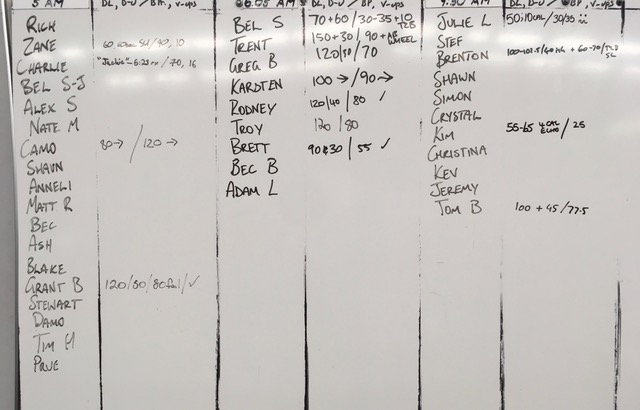 5 AM DL, D-J / BP, V-UPS
RICH
ZANE
CHARLIE
BEL S-J
ALEX S
NATE M
CAMO 80→ / 120→
SHAUN
ANNELI
MATT R
BEC
ASH
BLAKE
GRANT B 120/50/80 fail/✓
STEWART
DAMO
TIM H
PRUE
6:05 AM DL, D-J / BP, V-UPS
BEL S 70+60/30-35+10
TRENT 150+30/90+AB WHEEL
GREG B 120/50/70
KARSTEN 100→/90→
RODNEY 120/40/80 ✓
TROY 120/80
BRETT 90×30/55 ✓
BEC B
ADAM L
9:30 AM DL, D-J / BP, V-UPS
JULIE L
STEF
BRENTON
SHAWN
SIMON
CRYSTAL
KIM 55-65 4CAL ECHO/25
CHRISTINA
KEV
JEREMY
TOM B 100+45/77.5